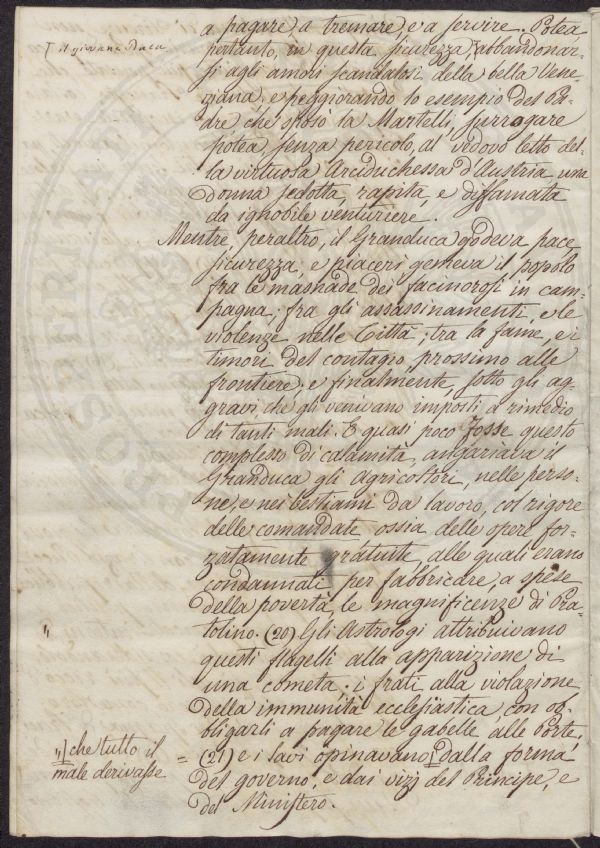 a pagare, a tremare, e a servire. Potea
[ il giovane Duca
pertanto, in questa sicurezza, [abbandonar-
si agli amori scandalosi della bella Vene-
ziana; e peggiorando lo esempio del Pa-
dre, che sposò la Martelli, surrogare
potea, senza pericolo, al vedovo letto del-
la virtuosa Arciduchessa d'Austria, una
donna sedotta, rapita, e diffamata
da ignobile venturiere.
Mentre, peraltro, il Granduca godeva pace
sicurezza, e piaceri, gemeva il popolo
fra le masnade dei facinorosi in cam-
pagna; fra gli assassinamenti, e le
violenze nelle Città; tra la fame, e i
timori del contagio, prossimo alle
frontiere; e finalmente, sotto gli ag-
gravi che gli venivano imposti a rimedio
di tanti mali. E quasi poco fosse questo
complesso di calamità, angariava il
Granduca gli Agricoltori, nelle perso-
ne, e nei bestiami da lavoro, col rigore
delle comandate, ossia delle opere for-
zatamente gratuite, alle quali erano
condannati per fabbricare, a spese
della povertà, le magnificenze di Pra-
tolino. (20) Gli Astrologi attribuivano
questi flagelli alla apparizione di
una cometa; i frati, alla violazione
della immunità ecclesiastica, con ob-
bligarli a pagare le gabelle alle Porte;
"] che tutto il
male derivasse
= (21) e i savi opinavano [dalla forma
del governo, e dai vizj del Principe, e
del Ministero.